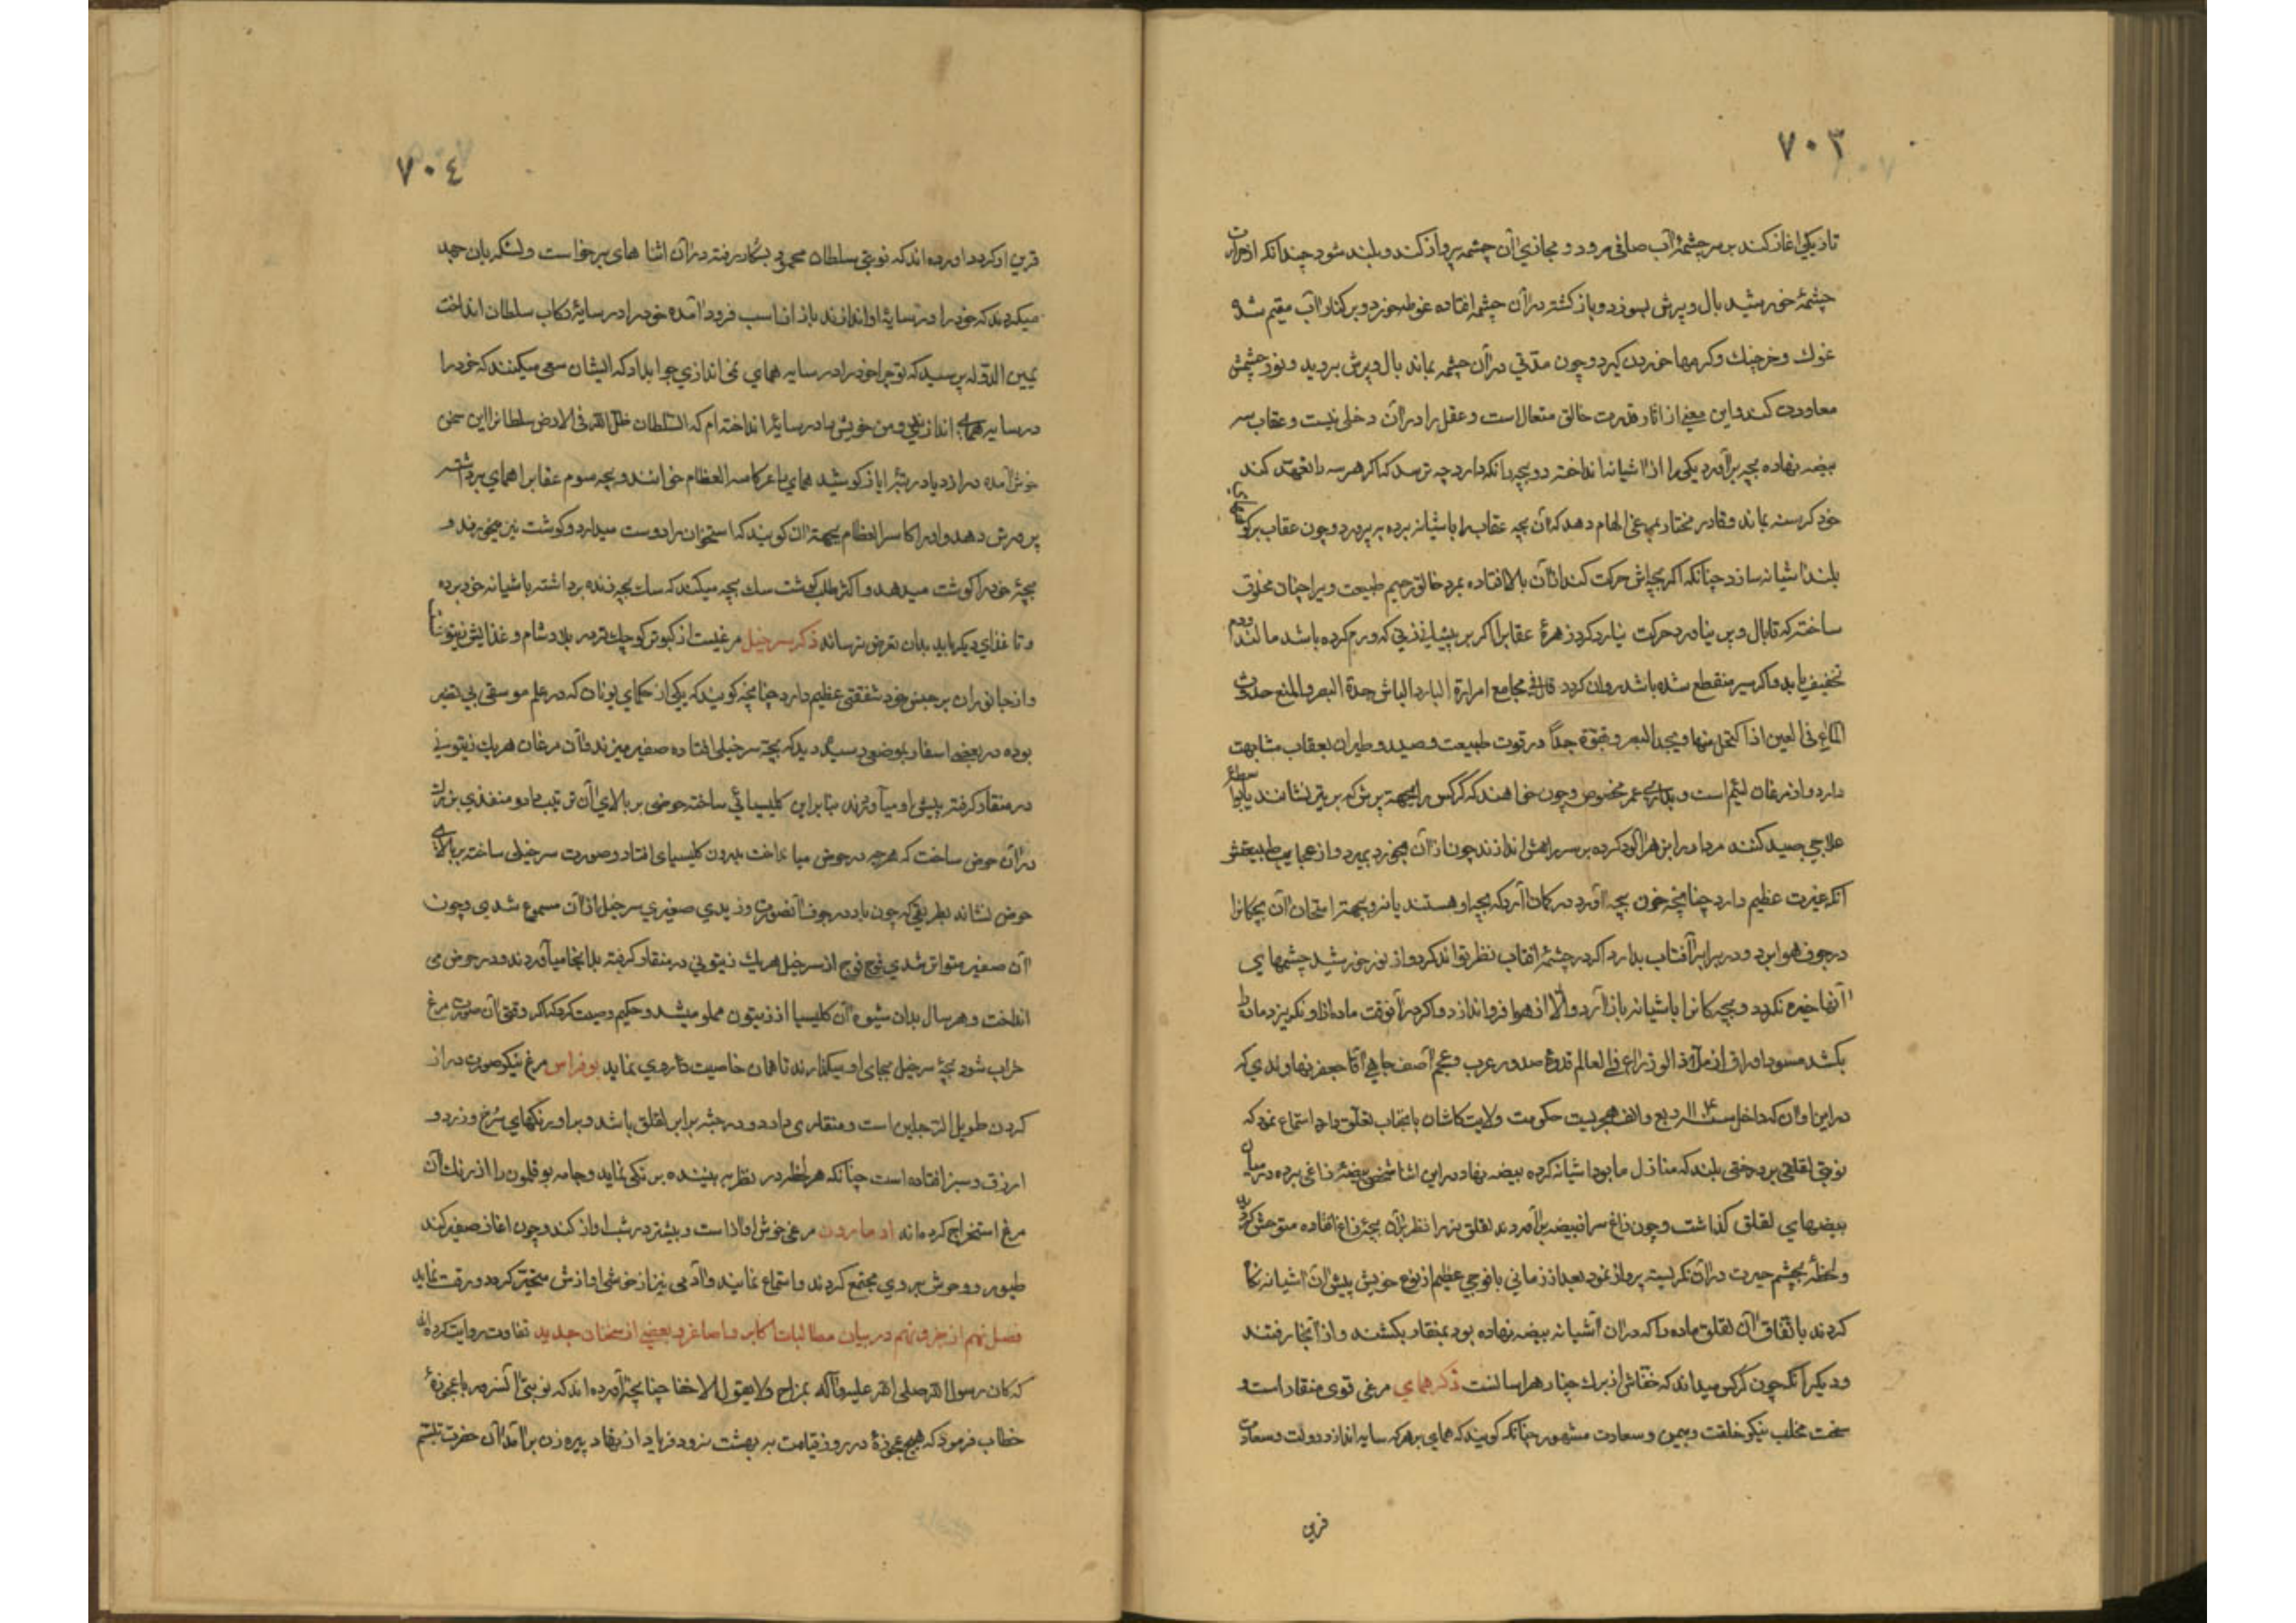 ۷۰۳
تاریکی اغاز کند بر سر چشمهٔ آب صافی رود و محاذی آن چشمه پرواز کند و بلند شود چندانکه از حرارت
چشمهٔ خورشید بال و پرش بسوزد و باز کشته در آن چشمه افتاده غوطه خورد و بر کنار آب مقیم شده
غوك و خرچنك و کرمها خوردن کیرد و چون مدتی در آن چشمه بماند بال و پرش بروید و نور چشمش
معاودت کند و این معنی از اثار قدرت خالق متعال است و عقل را در آن دخلی نیست و عقاب سه
بیضه نهاده بچه برآورد یکی را از اشیانه انداخته دو بچه را نکه دارد چه ترسد که اکر هر سه را تعهد کند
خود کرسنه بماند و قادر مختار بمرغی الهام دهد که آن بچه عقاب را باشیانه برده بپرورد و چون عقاب بر کوهای
بلند اشیانه سازد چنانکه اکر بچه‌اش حرکت کند از آن بالا افتاده بمرد خالق رحیم طبیعت ویرا چنان مخلوق
ساخته که تا بال و پر نیاورد حرکت نیارد کرد زهرهٔ عقاب را اکر بر پستان زنی که ورم کرده باشد مالند ورم
تخفیف یابد و اکر شیر منقطع شده باشد روان کردد قال فی مجامع امرارة البارد الباش حدة البصر و المنع حدوث
الماء فی العین اذا اکتحل منها و یحد البصر و قوته جداً در قوت طبیعت و صید و طیران بعقاب مشابهت
دارد و از مرغان لئیم است و بدرازی عمر مخصوص و چون خواهند که کرکس را بجهة پرش که بر تیر نشانند یا بانواع
علاجی صید کنند مردار را بزهر آلود کرده بر سر راهش اندازند چون از آن بخورد بمیرد و از عجایب طبیعتش
آنکه غیرت عظیم دارد چنانچه چون بچه آورد در کمان آرد که بچه او هستند یا نه و بجهة امتحان آن بچکانرا
در جوف هوا برد و در برابر آفتاب بدارد اکر در چشمهٔ افتاب نظر تواند کرد و از نور خورشید چشمهای
آنها خیره نکردد و بچه‌کانرا باشیانه باز آرد و الا از هوا فرو اندازد و اکر در آنوقت ماده از او نکریزد ماده را
بکشد مسود اوراق از ملاذ الوزراء فی العالم قدوهٔ صدور عرب و عجم آصف جاهی آقا جعفر نهاوندی که
در این اوان که داخل سنه ۱۰۰۴ اربع و الف هجریست حکومت ولایت کاشان بانجناب تعلق دارد استماع نمود که
نوبتی لقلقی بر درختی بلند که منازل ما بود اشیانه کرده بیضه نهاد در این اثنا شخصی بیضهٔ زاغی برده در میان
بیضهای لقلق کذاشت و چون زاغ سر از بیضه برآورد و لقلق نر را نظر بر آن بچهٔ زاغ افتاده متوحش کردید
و لحظهٔ بچشم حیرت در آن نکریسته پرواز نمود بعد از زمانی با فوجی عظیم از نوع خویش پیش آن اشیانه
کردند باتفاق آن لقلق ماده را که در آن آشیانه بیضه نهاده بود بمنقار بکشند و از آنجا رفتند
و دیکر آنکه چون کرکس میداند که خفاش از برك چنار هراسانست ذکر همای مرغی قوی منقار است و
سخت مخلب نیکو خلقت و بیمن و سعادت مشهور چنانکه کویند که همای بر هر که سایه اندازد دولت و سعادت
قرین
۷۰٤
قرین او کردد اورده‌اند که نوبتی سلطان محمود بشکار رفته در آن اثنا همای برخواست و لشکریان جهد
میکردند که خود را در سایهٔ او اندازند ایاز از اسب فرود آمده خود را در سایهٔ رکاب سلطان انداخت
یمین الدوله پرسید که تو چرا خود را در سایه همای نمی اندازی جواب داد که ایشان سعی میکنند که خود را
در سایه همای اندازند و من خویش را در سایهٔ انداخته ام که السلطان ظل الله فی الارض سلطانرا این سخن
خوش آمده در ازدیاد مرتبهٔ ایاز کوشید همای را عرب کاسر العظام خوانند و بچه سوم عقاب را همای برداشته
پرورش دهد و او را کاسر العظام بجهة آن کویند که استخوان را دوست میدارد و کوشت نیز میخورند و
بچهٔ خود را کوشت میدهد و اکثر طلب کوشت سك بچه میکند که سك بچه زنده برداشته باشیانه خود برده
و تا غذای دیکر یابد بدان تعرض نرساند ذکر سرخیل مرغیست از کبوتر کوچك‌تر در بلاد شام و غذایش زیتون
و از جانوران بر جنس خود شفقتی عظیم دارد چنانچه کویند که یکی از حکمای یونان که در علم موسقی بی نظیر
بوده در بعضی اسفار بموضعی رسید دید که بچهٔ سرخیلی افتاده صفیر میزند و آن مرغان هریك زیتونی
در منقار کرفته پیش او میآورند بنا براین کلیسیائی ساخته حوضی بر بالای آن ترتیب داد و منفذی بزرك
در آن حوض ساخت که هر چه در حوض میانداخت بدرون کلیسیای افتاد و صورت سرخیلی ساخته بر بالای
حوض نشاند بطریقی که چون باد در جوف آنصورت وزیدی صفیری سرخیل از آن مسموع شدی و چون
آن صفیر متواتر شدی فوج فوج از سرخیل هریك زیتونی در منقار کرفته بدانجا میآوردند و در حوض می
انداخت و هر سال بدان شیوه آن کلیسیا از زیتون مملو میشد و حکیم وصیت کرد که اکر وقتی آن صورت مرغ
خراب شود بچهٔ سرخیل بجای او بیکذارند تا همان خاصیت روی نماید بوفراس مرغ نیکو صورت دراز
کردن طویل الرجلین است و منقاری دارد و در جثه برابر لقلق باشد و بر او رنکهای سُرخ و زرد و
ازرق و سبز افتاده است چنانکه هر لحظه در نظر بیننده برنکی نماید و جامه بوقلمون را از رنك آن
مرغ استخراج کرده‌اند ادمارون مرغی خوش اواز است و بیشتر در شب اواز کند و چون اغاز صفیر کند
طیور و وحوش بر وی مجتمع کردند و استماع نمایند و آدمی نیز از خوشی اوازش متحیر کردد و رقت نماید
فصل نهم از جزو نهم در بیان مطالبات اکابر و اصاغر و بعضی از سخنان جدید ثقات روایت کرده‌اند
که کان رسول الله صلی الله علیه و آله یمزاح و لا یقول الا حقا چنانچه آورده‌اند که نوبتی آنسرور با عجوزهٔ
خطاب فرمود که هیچ عجوزهٔ در روز قیامت به بهشت نرود فریاد از نهاد پیره زن برآمد آن حضرت تبسم